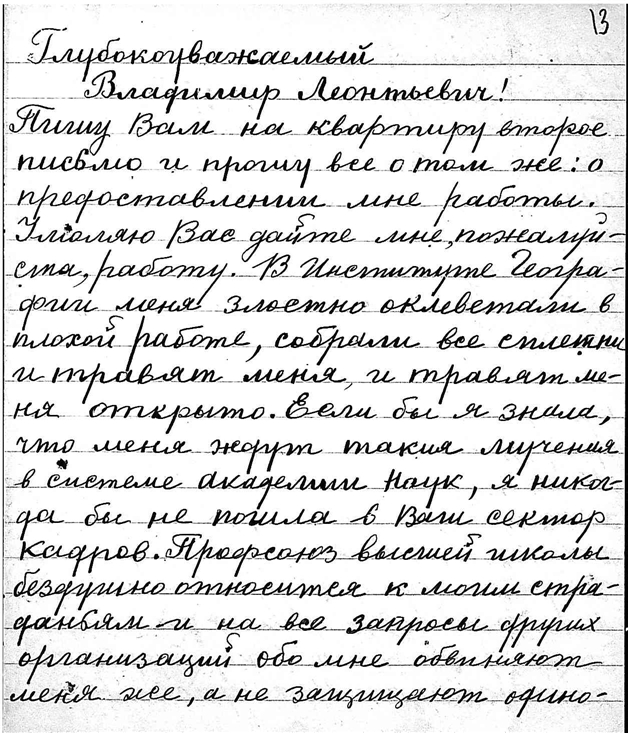 13
Глубокоуважаемый
Владимир Леонтьевич!
Пишу Вам на квартиру второе
письмо и прошу все о том же: о
предоставлении мне работы.
Умоляю Вас дайте мне, пожалуй-
ста, работу. В Институте Геогра-
фии меня злостно оклеветали в
плохой работе, собрали все сплетни
и травят меня, и травят ме-
ня открыто. Если бы я знала,
что меня ждут такия мучения
в системе Академии Наук, я никог-
да бы не пошла в Ваш сектор
кадров. Профсоюз высшей школы
бездушно относится к моим стра-
даньям и на все запросы других
организаций обо мне обвиняют
меня же, а не защищают одино-